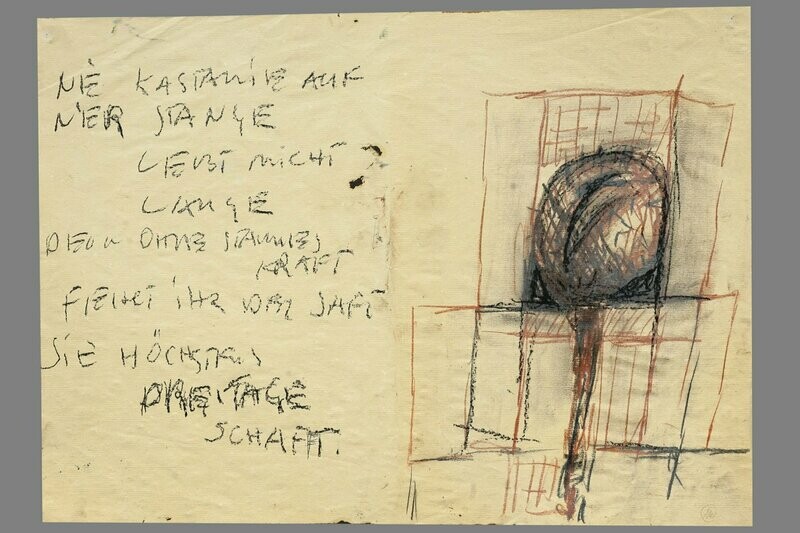 NE KASTANIE AUF
N'ER STANGE
LEBT NICHT
LANGE
DENN OHNE STAMMES
KRAFT
FEHLT IHR DER SAFT
SIE HÖCHSTENS
DREI TAGE
SCHAFFT.